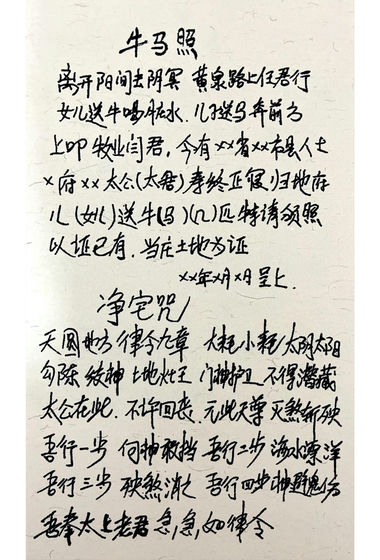 牛马照
离开阳间去阴冥 黄泉路上任君行
女儿送牛喝脏水.儿子送马奔前方
上叩牧业闫君,今有××省××市县人士
×府××太公(太君)寿终正寝归地府
儿(女儿)送牛(马)(几)匹特请颁照
以证已有.当庄土地为证
××年×月×日呈上.
净宅咒
天圆地方 律令九章 大耗小耗太阴太阳
勾陈绞神 土地灶王 门神护卫 不得潜藏
太公在此.不许回丧.元始天尊 灭煞斩殃
吾行一步 何神敢挡 吾行二步 海水漂洋
吾行三步 殃煞消亡 吾行四步神避鬼伤
吾奉太上老君 急急如律令